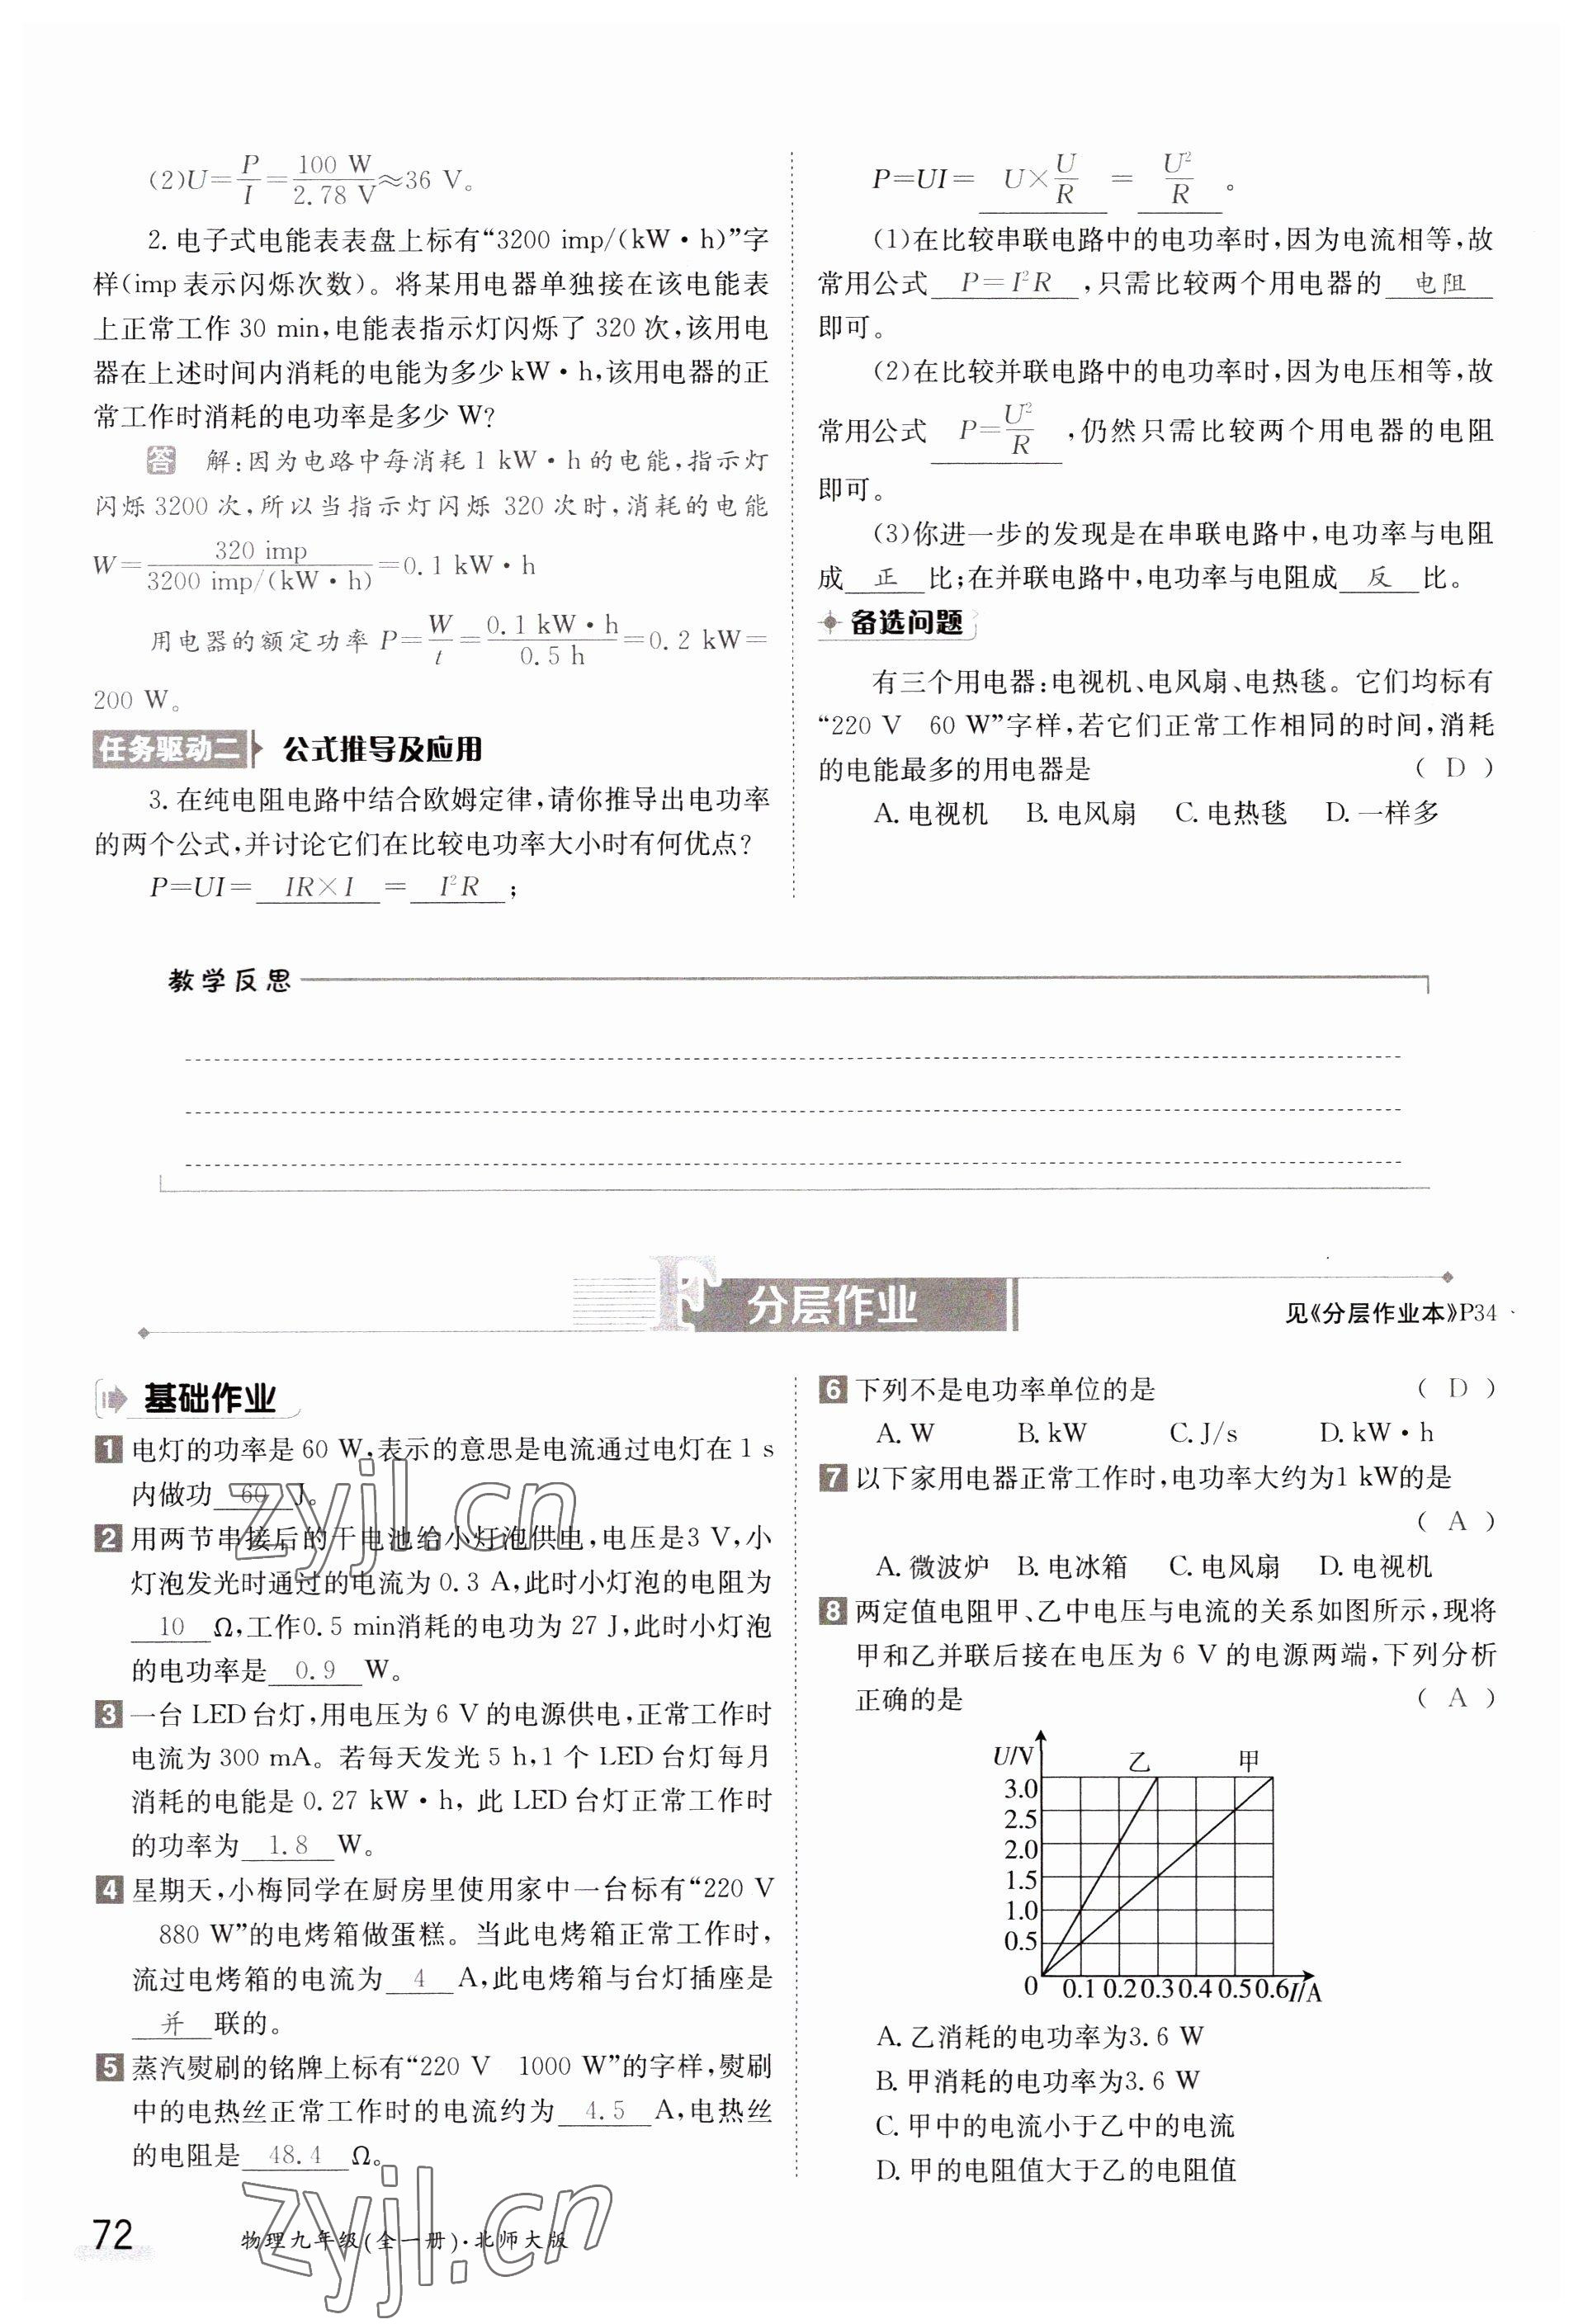 (2)U=P/I=100 W/2.78 V≈36 V。
2. 电子式电能表表盘上标有“3200 imp/(kW·h)”字
样(imp表示闪烁次数)。将某用电器单独接在该电能表
上正常工作30 min,电能表指示灯闪烁了320次,该用电
器在上述时间内消耗的电能为多少kW·h,该用电器的正
常工作时消耗的电功率是多少W?
答 解:因为电路中每消耗1 kW·h的电能,指示灯
闪烁3200次,所以当指示灯闪烁320次时,消耗的电能
W=320 imp/3200 imp/(kW·h)=0.1 kW·h
用电器的额定功率P=W/t=0.1 kW·h/0.5 h=0.2 kW=
200 W。
任务驱动二 公式推导及应用
3. 在纯电阻电路中结合欧姆定律,请你推导出电功率
的两个公式,并讨论它们在比较电功率大小时有何优点?
P=UI= IR×I = I²R ;
P=UI= U×U/R = U²/R 。
(1)在比较串联电路中的电功率时,因为电流相等,故
常用公式 P=I²R ,只需比较两个用电器的 电阻
即可。
(2)在比较并联电路中的电功率时,因为电压相等,故
常用公式 P=U²/R ,仍然只需比较两个用电器的电阻
即可。
(3)你进一步的发现是在串联电路中,电功率与电阻
成 正 比;在并联电路中,电功率与电阻成 反 比。
备选问题
有三个用电器:电视机、电风扇、电热毯。它们均标有
“220 V 60 W”字样,若它们正常工作相同的时间,消耗
的电能最多的用电器是 ( D )
A. 电视机 B. 电风扇 C. 电热毯 D. 一样多
教学反思
F 分层作业
见《分层作业本》P34
基础作业
1 电灯的功率是60 W,表示的意思是电流通过电灯在1 s
内做功 60 J。
2 用两节串接后的干电池给小灯泡供电,电压是3 V,小
灯泡发光时通过的电流为0.3 A,此时小灯泡的电阻为
10 Ω,工作0.5 min消耗的电功为27 J,此时小灯泡
的电功率是 0.9 W。
3 一台LED台灯,用电压为6 V的电源供电,正常工作时
电流为300 mA。若每天发光5 h,1个LED台灯每月
消耗的电能是0.27 kW·h,此LED台灯正常工作时
的功率为 1.8 W。
4 星期天,小梅同学在厨房里使用家中一台标有“220 V
880 W”的电烤箱做蛋糕。当此电烤箱正常工作时,
流过电烤箱的电流为 4 A,此电烤箱与台灯插座是
并 联的。
5 蒸汽熨刷的铭牌上标有“220 V 1000 W”的字样,熨刷
中的电热丝正常工作时的电流约为 4.5 A,电热丝
的电阻是 48.4 Ω。
6 下列不是电功率单位的是 ( D )
A. W B. kW C. J/s D. kW·h
7 以下家用电器正常工作时,电功率大约为1 kW的是
( A )
A. 微波炉 B. 电冰箱 C. 电风扇 D. 电视机
8 两定值电阻甲、乙中电压与电流的关系如图所示,现将
甲和乙并联后接在电压为6 V的电源两端,下列分析
正确的是 ( A )
U/V 乙 甲
3.0
2.5
2.0
1.5
1.0
0.5
0 0.1 0.2 0.3 0.4 0.5 0.6 I/A
A. 乙消耗的电功率为3.6 W
B. 甲消耗的电功率为3.6 W
C. 甲中的电流小于乙中的电流
D. 甲的电阻值大于乙的电阻值
zyjl.cn
zyjl.cn
72 物理九年级(全一册)·北师大版